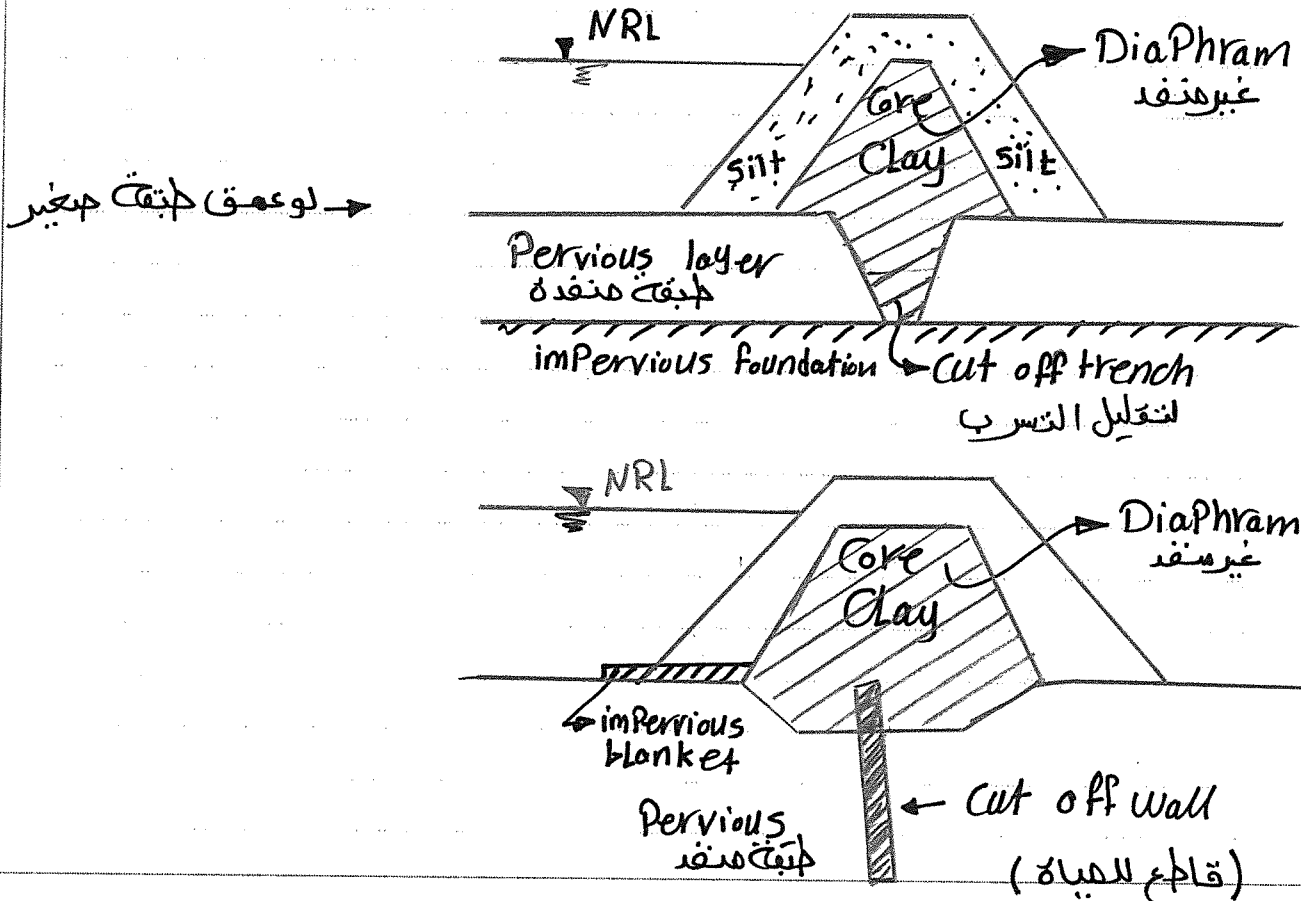 NRL
DiaPhram
غير منفد
Core
Clay
Silt
Silt
لو عمق طبقة صغير
Pervious layer
طبقة منفدة
imPervious foundation
Cut off trench
لتقليل التسرب
NRL
DiaPhram
غير منفد
Core
CLay
imPervious
blanket
Cut off wall
(قاطع للمياة)
Pervious
طبقة منفد